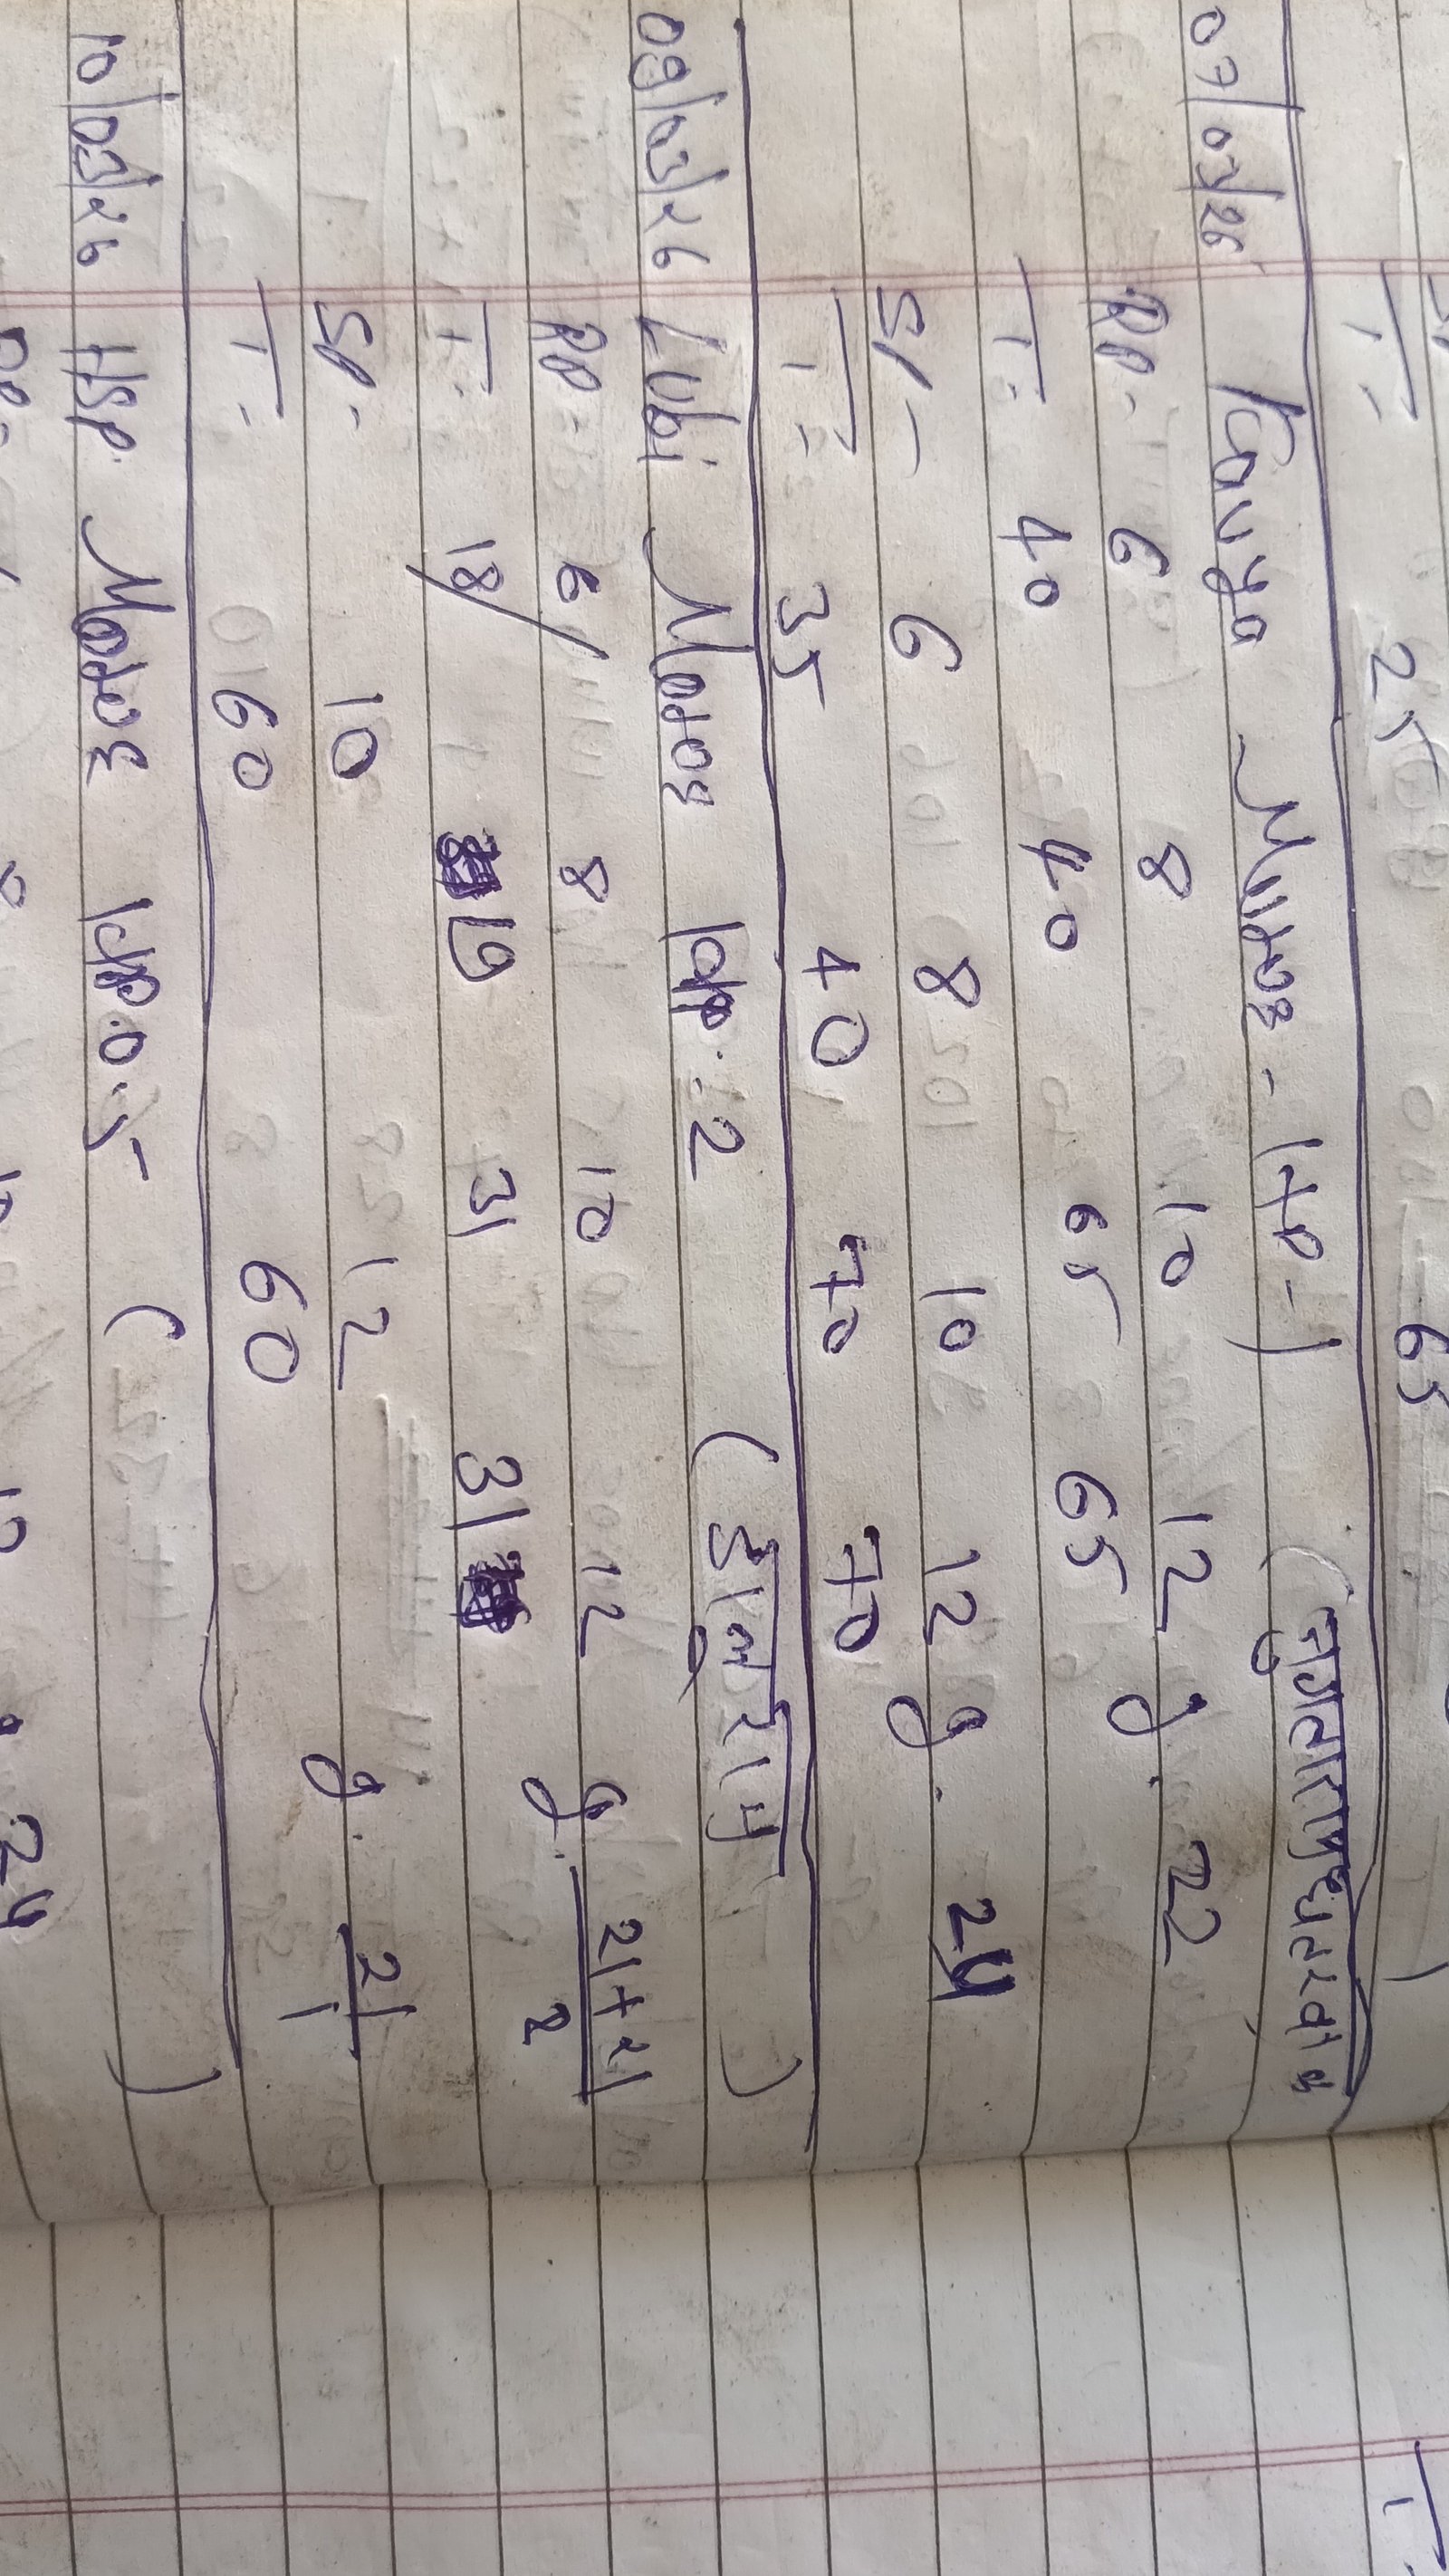 T:- 25 65
07/03/26 Kavya Motor - 1HP - (
RP- 6 8 10 12 g. 22
T: 40 40 65 65
SP- 6 8 10 12 g. 24
T:- 35 40 70 70
09/03/26 Lubi Motor HP. 2 ( )
RP- 6 8 10 12 g. 21+21/2
T:- 18/ 19 31 31
SP- 10 12 g. 21/1
T:- 60 60
10/03/26 HSP. Motor HP 0.5 ( )